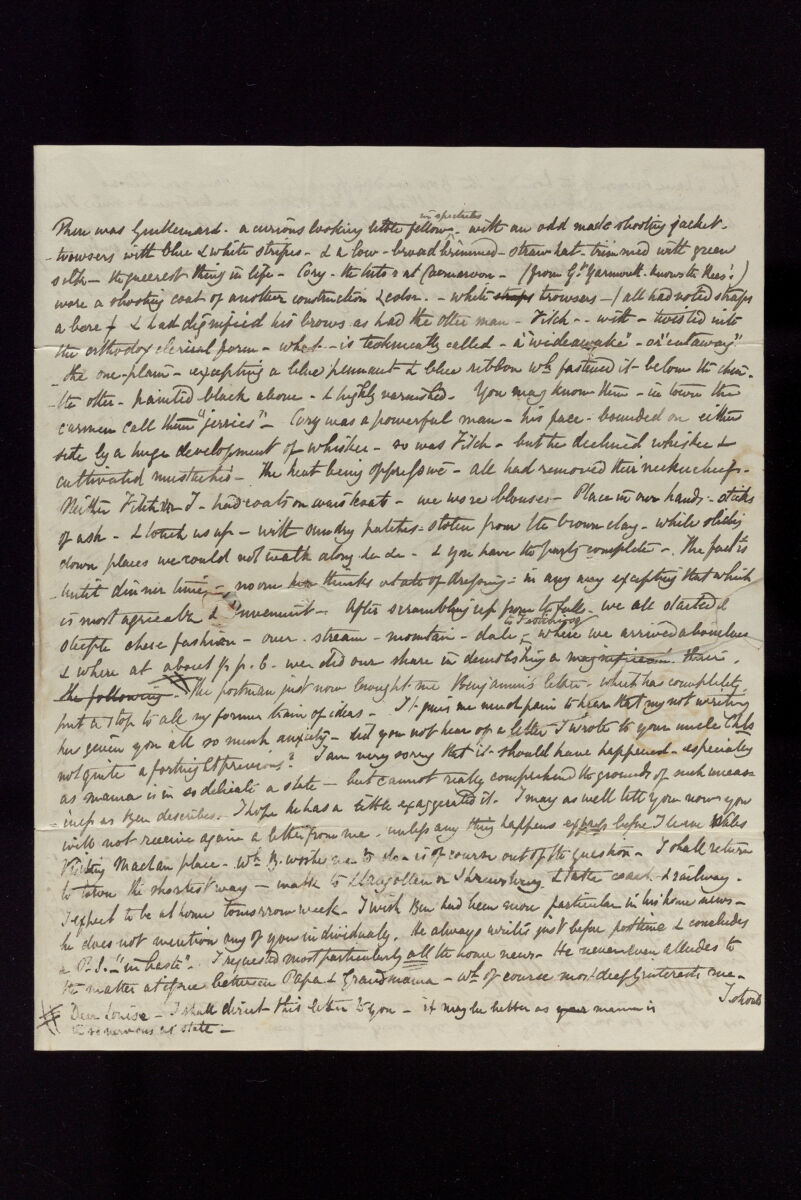 There was Guillemard - a curious looking little fellow - in spectacles with an odd made shooting jacket -
- trowsers with blue & white stripes - & a low - broad brimmed - straw hat - trimmed with green
silk - the queerest thing in life - Cory - the at Caernarvon - (from Gt Yarmouth - knows the Rees'!)
wore a shooting coat of another construction & color - white straps trowsers - (all had voted straps
a bore) & had dignified his brows as had the other man - Fitch - with - twisted into
the orthodox clerical form - what - is technically called - a "wideawake" - or "cutaway"
- the one - plain - excepting a blue pennant & blue ribbon wh. fastened it below the chin -
- the other - painted black above - & highly varnished - You may know them - in town the
carmen call them "jerries" - Cory was a powerful man - his face - bounded on either
side by a huge development of whisker - so was Fitch - but he declined whisker &
cultivated mustachio - The heat being oppressive - all had removed their neckerchiefs -
Neither Fitch or I - had coats or waistcoats - we wore blouses - Place in our hands - sticks
of ash - & touch us up - with sundry patches - stolen from the brown clay - while sliding
down places we could not walk along &c &c - & you have the party complete - The fact is
until dinner time - no one thinks of dressing - in any way excepting that which
is most agreeable & convenient - After scrambling up from the falls - we all started
steeple chase fashion - over - stream - mountain - dale - to Festiniog where we arrived
& where at about ½ p. 6 - we did our share in demolishing a magnificent
the following - The postman just now brought me Benjamin's letter - which has completely
put a stop to all my former train of ideas - It gives me much pain to hear that my not writing
has given you all so much anxiety - did you not hear of a letter I wrote to your uncle Chls
not quite a fortnight previous? I am very sorry that it should have happened - especially
as mama is in so delicate a state - but cannot really comprehend the grounds of such uneas-
iness as Ben describes - I hope he has a little exaggerated it. I may as well tell you now you
will not receive again a letter from me - unless any thing happens express before I leave Wales
Visiting place - wh. B. wishes me to do - is of course out of the question - I shall return
to town the shortest way - walk to Llangollen or Shrewsbury & take coach & railway -
I expect to be at home tomorrow week - I wish Ben had been more particular in his home news -
he does not mention any of you individually. He always writes just before posttime & concludes
a P.S. - "in haste". I requested most particularly all the home news - He never even alludes to
the matter between Papa & Grandmama - wh. of course most deeply interests me -
I should
Dear Louise - I shall direct this letter to you - it may be better as your mamma is
in so nervous a state -